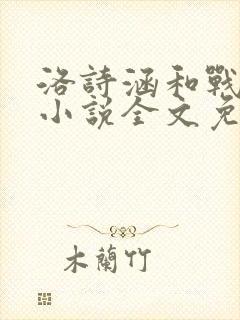 洛詩涵和戰
小説全文免
木蘭竹